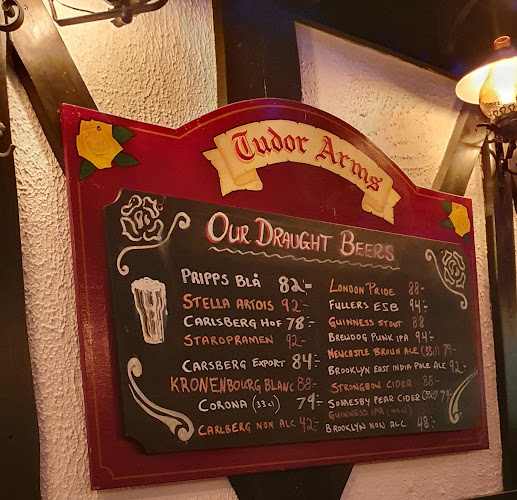 Tudor Arms
OUR DRAUGHT BEERS
PRIPPS BLÅ 82:-
STELLA ARTOIS 92:-
CARLSBERG HOF 78:-
STAROPRAMEN 92:-
CARSBERG EXPORT 84:-
KRONENBOURG BLANC 88:-
CORONA (33cl) 79:-
CARLBERG NON ALC 42:-
LONDON PRIDE 88:-
FULLERS ESB 94:-
GUINNESS STOUT 88
BREWDOG PUNK IPA 94:-
NEWCASTLE BROUN ALE (33cl) 79:-
BROOKLYN EAST INDIA PALE ALE 92:-
STRONGBOW CIDER 88:-
SOMESBY PEAR CIDER (33cl) 79:-
GUINNESS IPA
BROOKLYN NON ALC 48:-